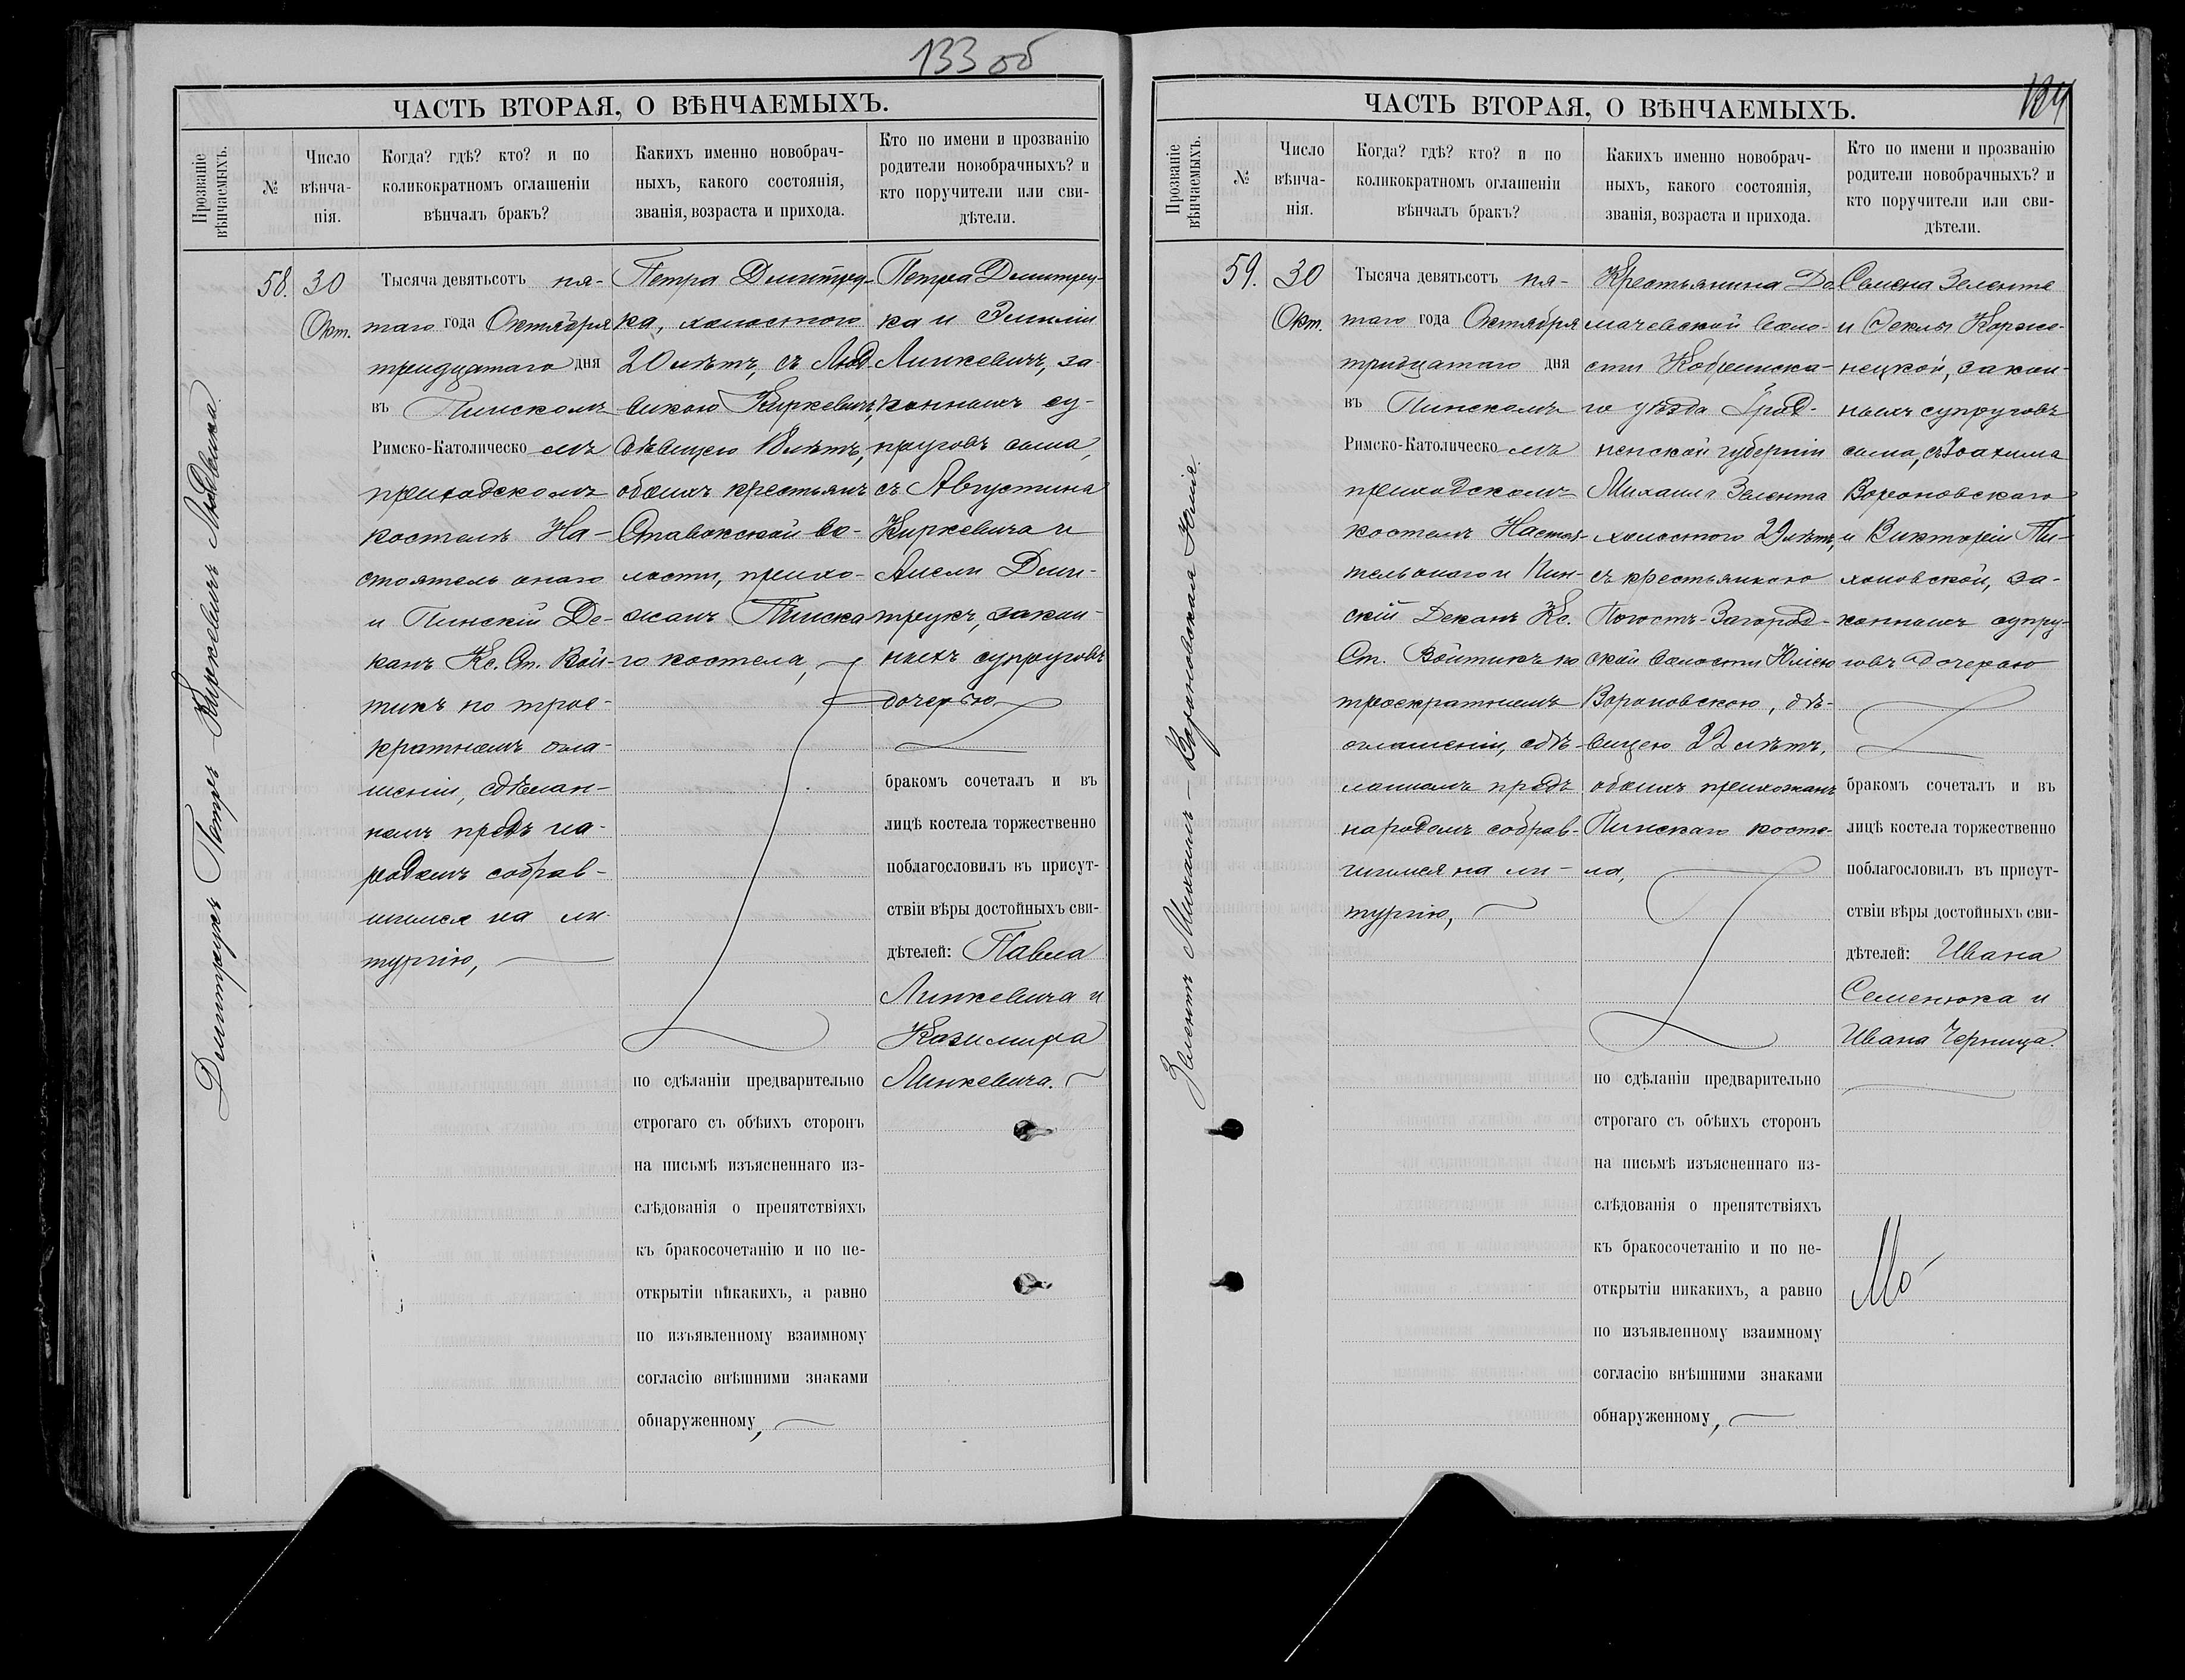 133 об
ЧАСТЬ ВТОРАЯ, О ВѢНЧАЕМЫХЪ.
Прозваніе
вѣнчаемыхъ.
№
Число
вѣнча-
нія.
Когда? гдѣ? кто? и по
коликократномъ оглашеніи
вѣнчалъ бракъ?
Какихъ именно новобрач-
ныхъ, какого состоянія,
званія, возраста и прихода.
Кто по имени и прозванію
родители новобрачныхъ? и
кто поручители или сви-
дѣтели.
Дмитрукъ Петръ - Киркевичъ Людвика.
58.
30
Окт.
Тысяча девятьсотъ пя-
таго года Октября
тридцатаго дня
въ Пинскомъ
Римско-Католическо мъ
приходскомъ
костелѣ На-
стоятель онаго
и Пинскій Де-
канъ Кс. Ст. Вой-
тикъ по трое-
кратномъ огла-
шеніи, сдѣлан-
номъ предъ на-
родомъ собрав-
шимся на ли-
тургію,
Петра Дмитру-
ка, холостого
20 лѣтъ, съ Люд-
викою Киркевичъ,
дѣвицею 18 лѣтъ,
обоихъ крестьянъ
Ставокской во-
лости, прихо-
жанъ Пинска-
го костела,
по сдѣланіи предварительно
строгаго съ обѣихъ сторонъ
на письмѣ изъясненнаго из-
слѣдованія о препятствіяхъ
къ бракосочетанію и по не-
открытіи никакихъ, а равно
по изъявленному взаимному
согласію внѣшними знаками
обнаруженному,
Петра Дмитру-
ка и Эмиліи
Линкевичъ, за-
конныхъ су-
пруговъ сына,
съ Августина
Киркевича и
Анели Дми-
трукъ, закон-
ныхъ супруговъ
дочерью
бракомъ сочеталъ и въ
лицѣ костела торжественно
поблагословилъ въ присут-
ствіи вѣры достойныхъ сви-
дѣтелей: Павла
Линкевича и
Казимира
Линкевича.
134
ЧАСТЬ ВТОРАЯ, О ВѢНЧАЕМЫХЪ.
Прозваніе
вѣнчаемыхъ.
№
Число
вѣнча-
нія.
Когда? гдѣ? кто? и по
коликократномъ оглашеніи
вѣнчалъ бракъ?
Какихъ именно новобрач-
ныхъ, какого состоянія,
званія, возраста и прихода.
Кто по имени и прозванію
родители новобрачныхъ? и
кто поручители или сви-
дѣтели.
Зелентъ Михаилъ - Вороновская Юлія.
59.
30
Окт.
Тысяча девятьсотъ пя-
таго года Октября
тридцатаго дня
въ Пинскомъ
Римско-Католическо мъ
приходскомъ
костелѣ Настоя-
тель онаго и Пин-
скій Деканъ Кс.
Ст. Войтикъ по
троекратномъ
оглашеніи, сдѣ-
ланномъ предъ
народомъ собрав-
шимся на ли-
тургію,
Крестьянина До
мачевской воло-
сти Кобринска-
го уѣзда Грод-
ненской губерніи
Михаила Зелента
холостого 29 лѣтъ,
съ крестьянкою
Погостъ-Загород-
ской волости Юліею
Вороновскою, дѣ-
вицею 22 лѣтъ,
обоихъ прихожанъ
Пинскаго косте-
ла,
по сдѣланіи предварительно
строгаго съ обѣихъ сторонъ
на письмѣ изъясненнаго из-
слѣдованія о препятствіяхъ
къ бракосочетанію и по не-
открытіи никакихъ, а равно
по изъявленному взаимному
согласію внѣшними знаками
обнаруженному,
Семена Зеленте
и Феклы Корже-
нецкой, закон-
ныхъ супруговъ
сына, съ Іоахима
Вороновскаго
и Викторіи Ти-
хоновской, за-
конныхъ супру-
говъ дочерью
бракомъ сочеталъ и въ
лицѣ костела торжественно
поблагословилъ въ присут-
ствіи вѣры достойныхъ сви-
дѣтелей: Ивана
Семенюка и
Ивана Черница.